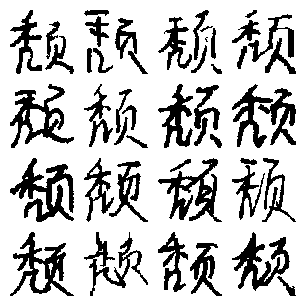 颓颓颓颓
颓颓颓颓
颓颓颓颓
颓颓颓颓